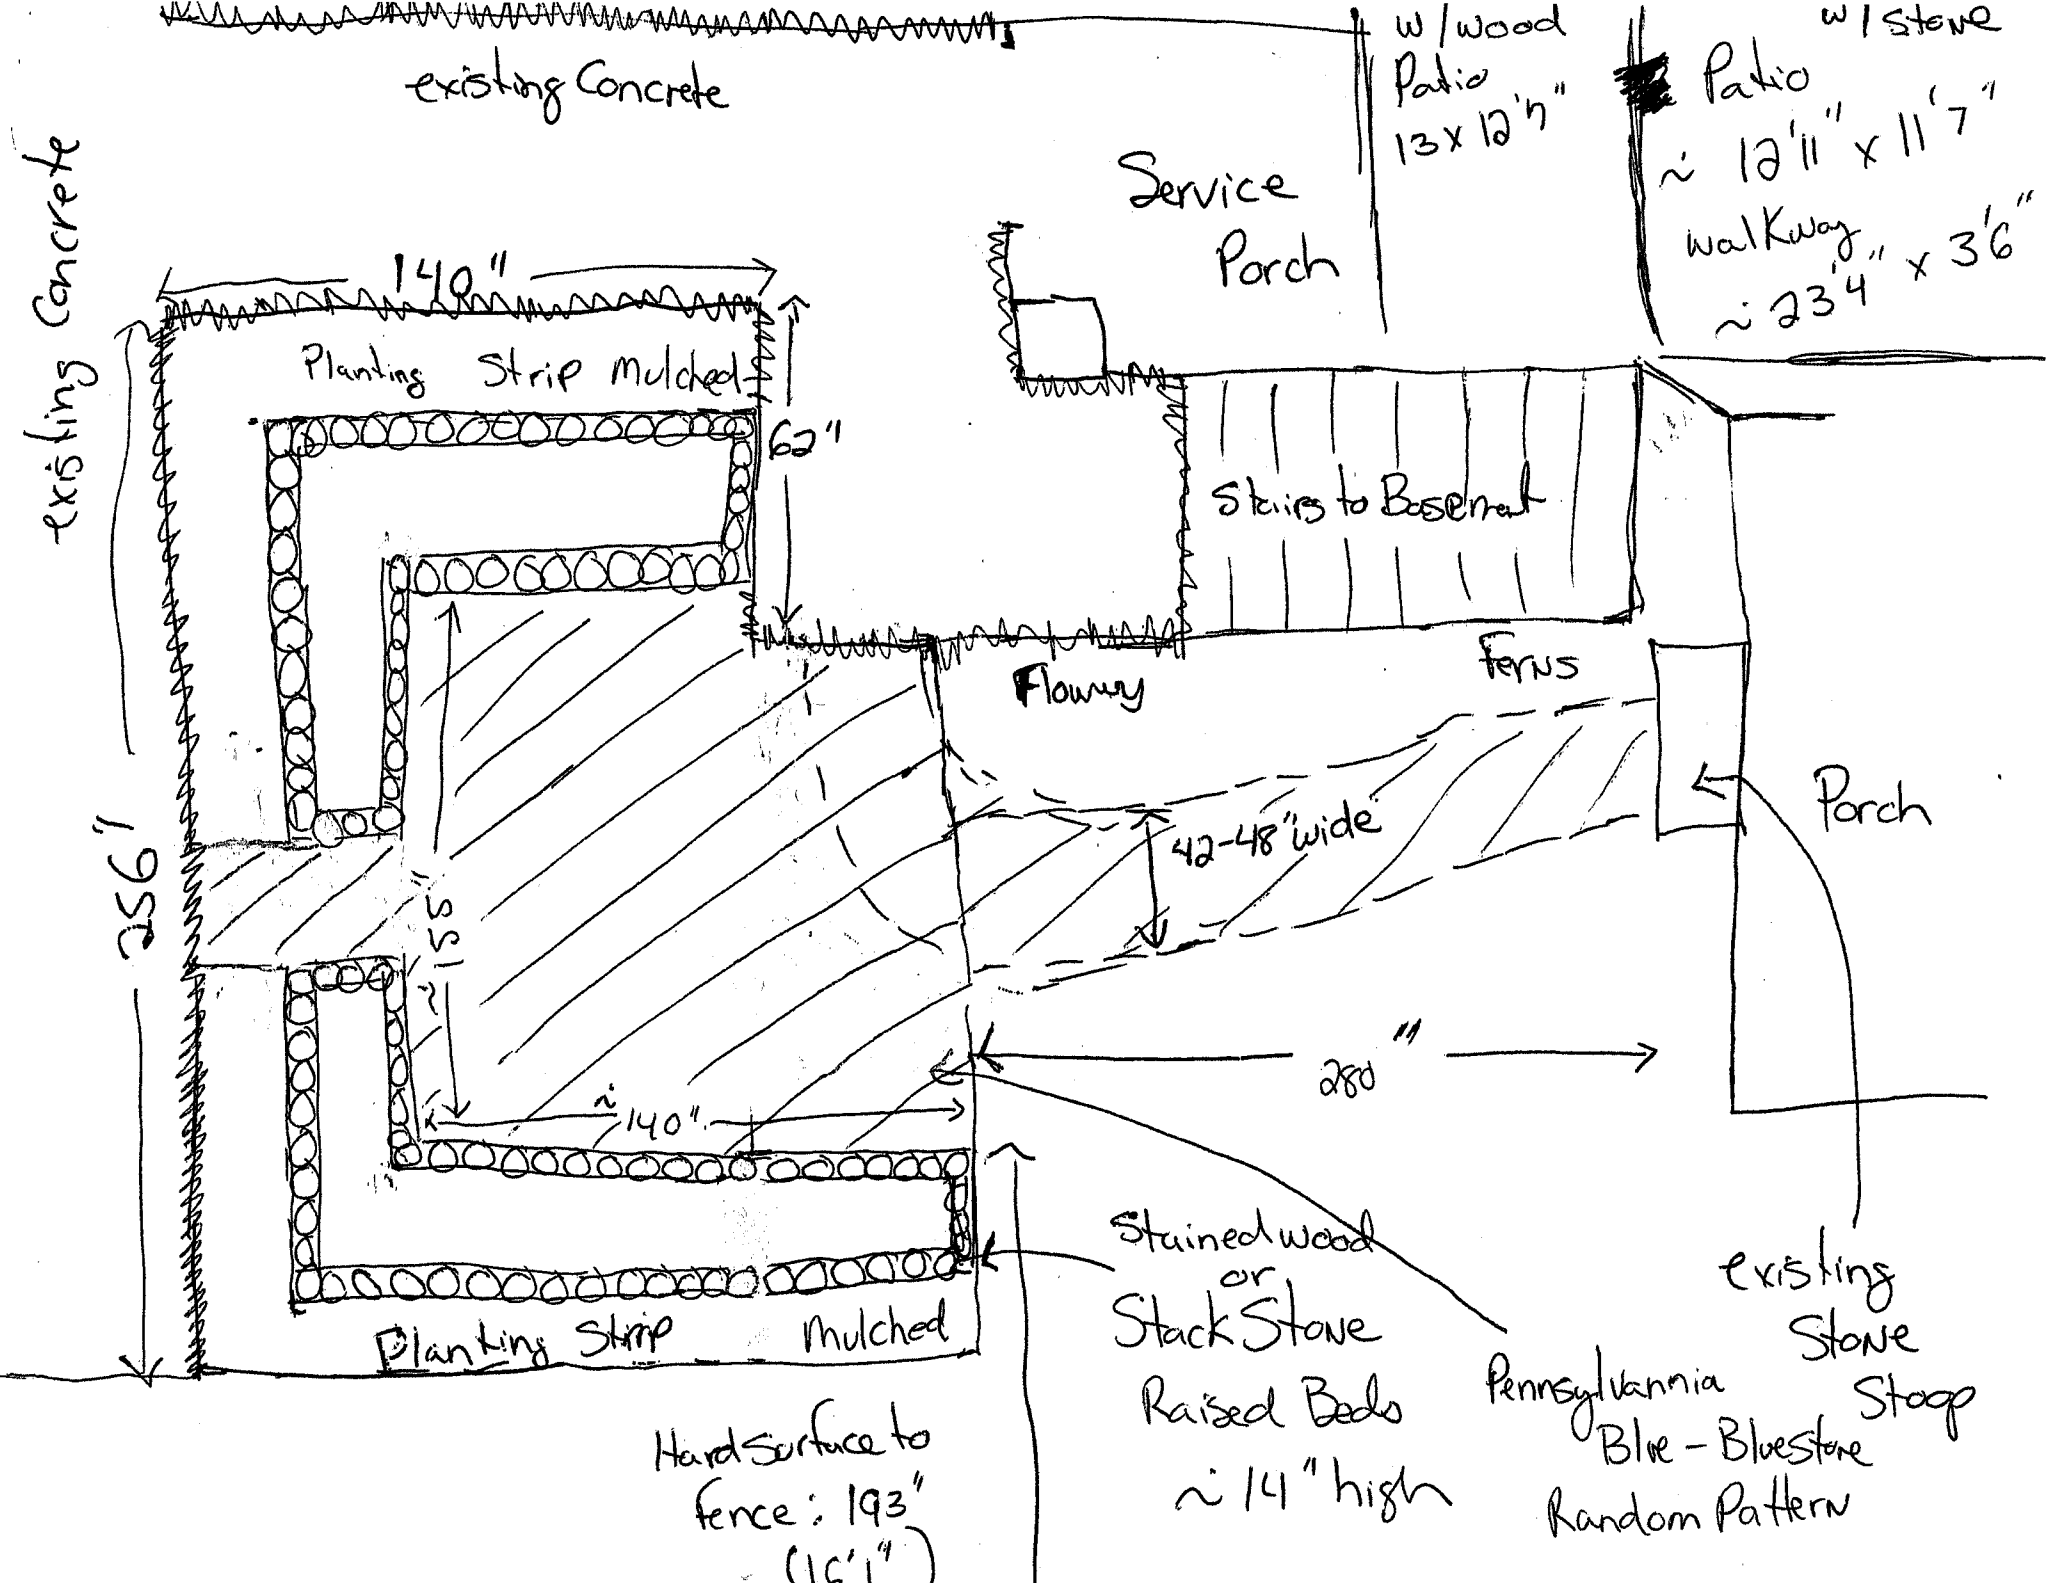 existing Concrete
w/wood
Patio
13 x 12'7"
w/stone
Patio
~ 12'11" x 11'7"
walkway
~ 23'4" x 3'6"
Service
Porch
existing Concrete
140"
Planting Strip Mulched
62"
Stairs to Basement
Ferns
256"
~ 155"
42-48" wide
Porch
280"
~ 140"
Stained wood
or
Stack Stone
Raised Beds
~ 14" high
existing
Stone
Stoop
Planting Strip Mulched
Pennsylvannia
Blue - Bluestone
Random Pattern
Hard surface to
fence: 193"
(16'1")